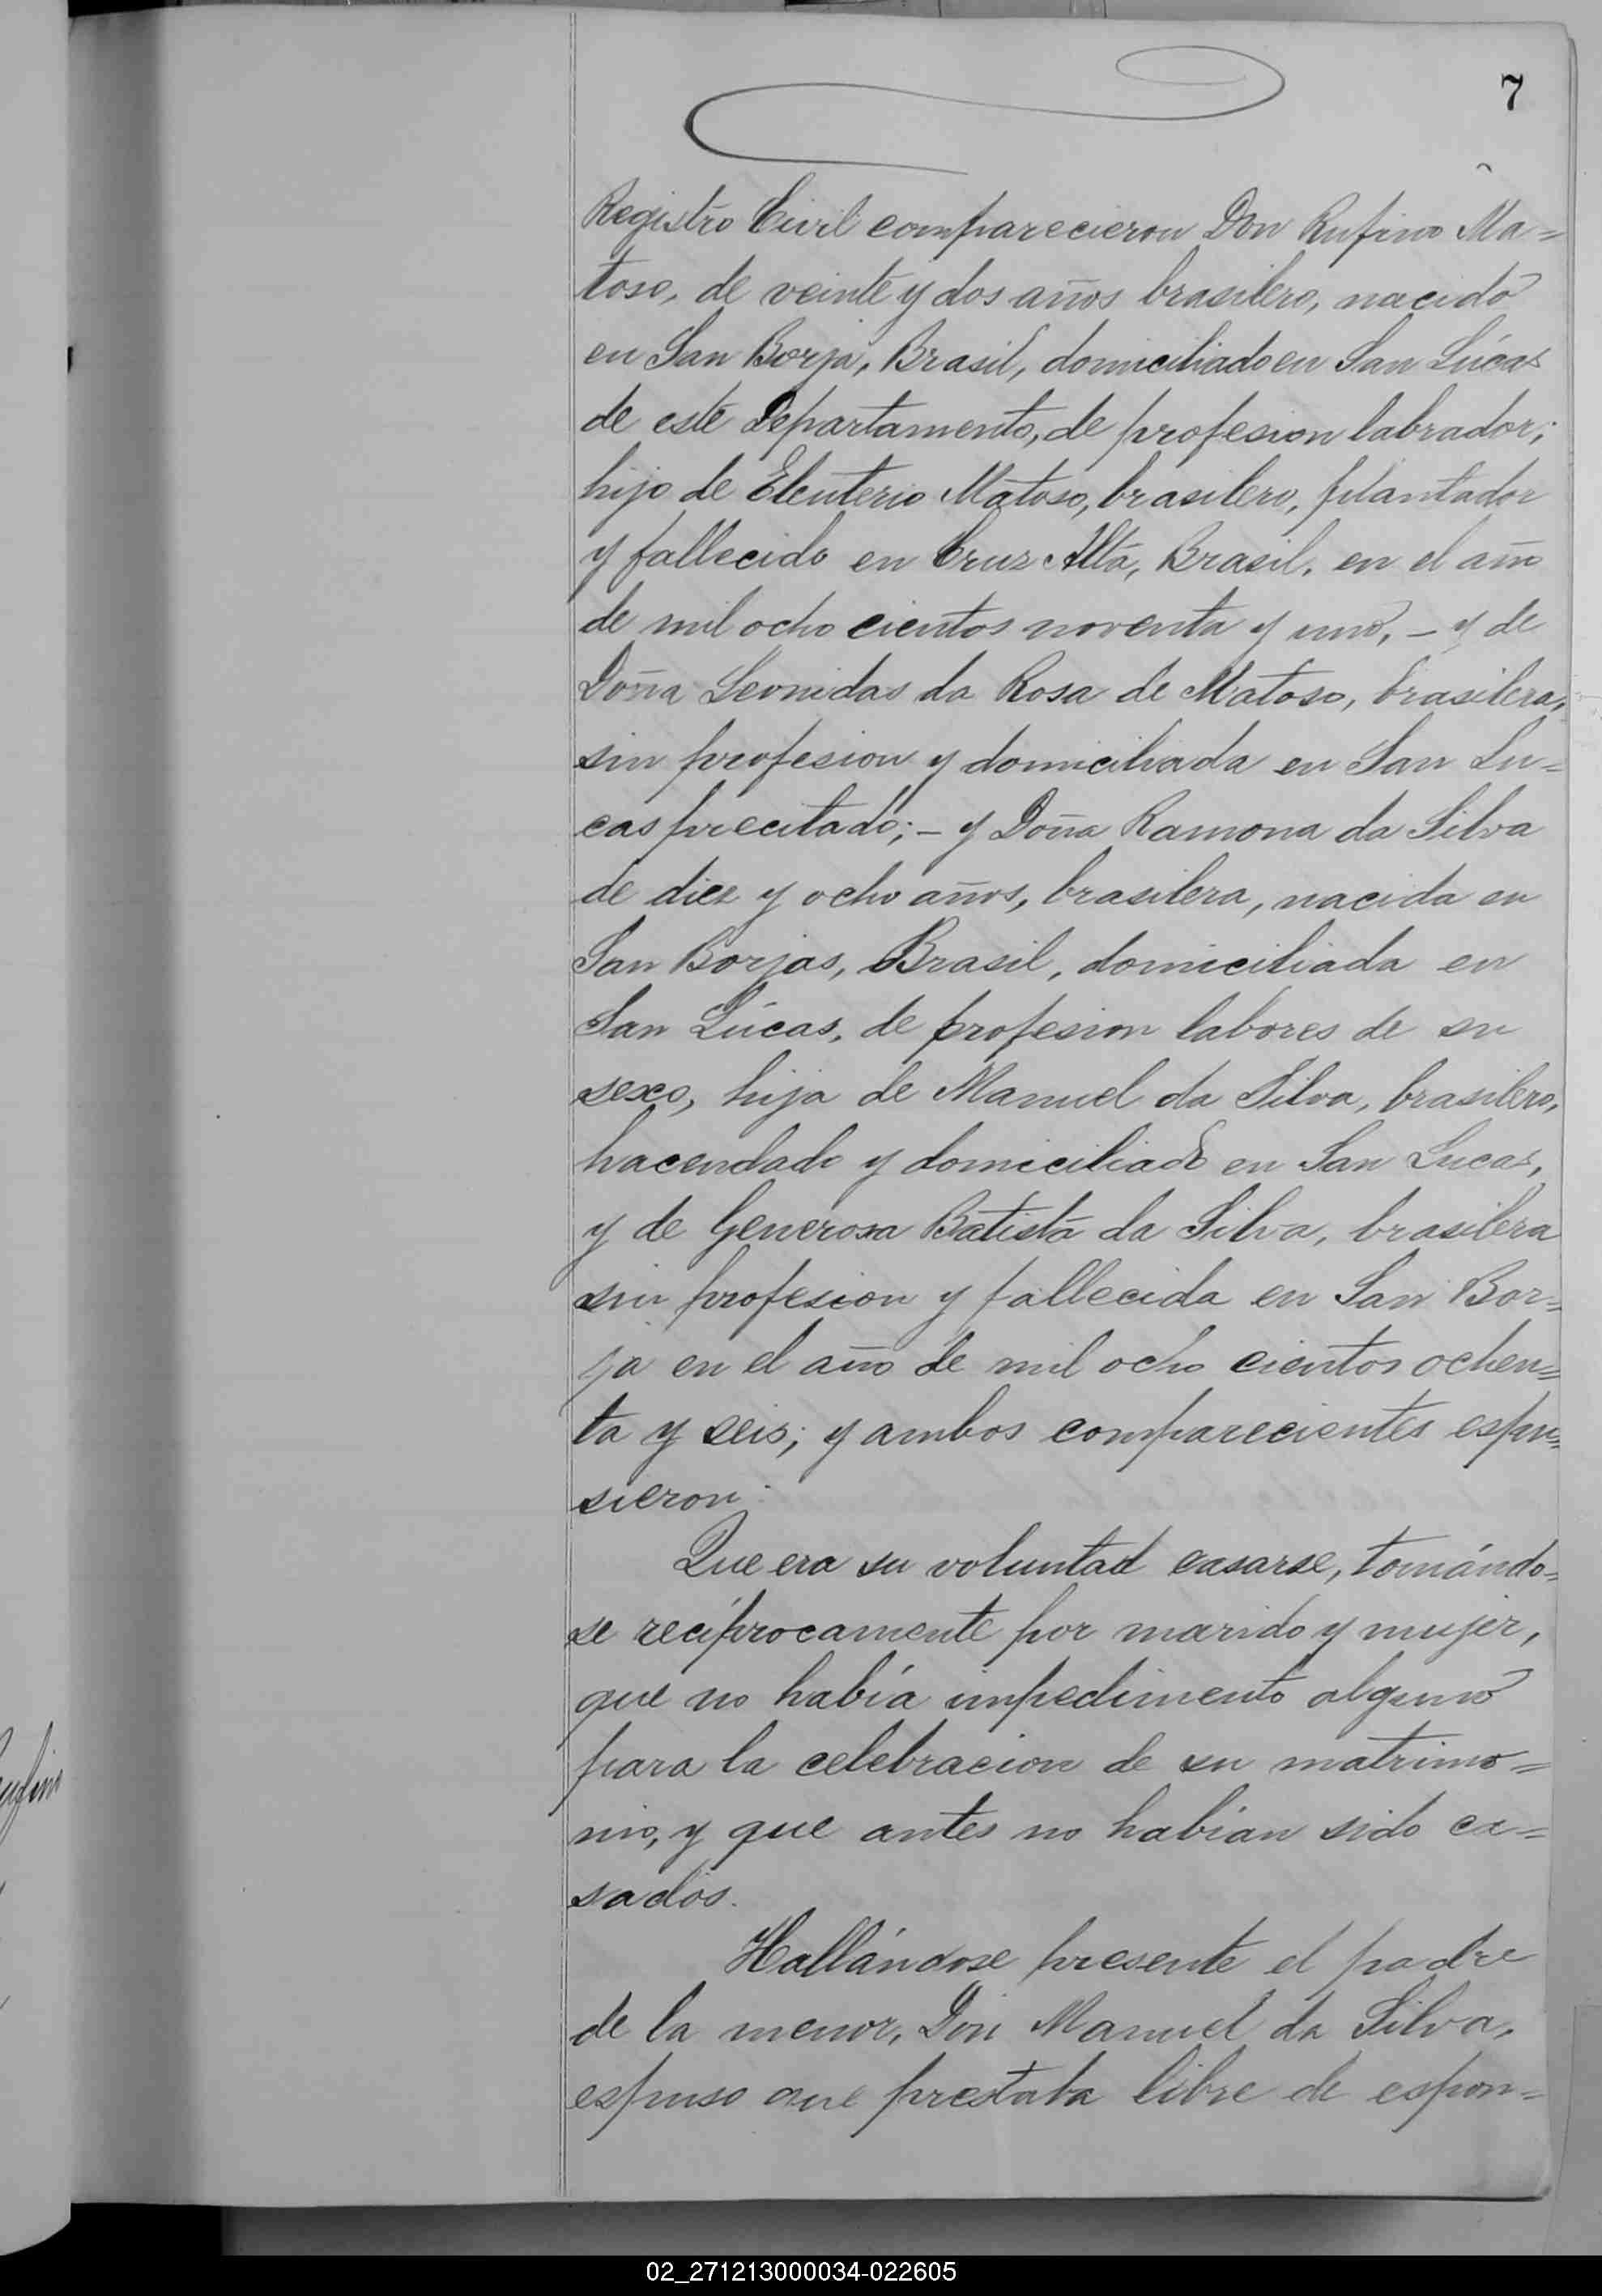 7
Registro Civil comparecieron Don Rufino Ma=
toso, de veinte y dos años brasilero, nacido
en San Borja, Brasil, domiciliado en San Lúcas
de este Departamento, de profesion labrador;
hijo de Eleuterio Matoso, brasilero, plantador
y fallecido en Cruz Alta, Brasil, en el año
de mil ocho cientos noventa y uno, – y de
Doña Leonidas da Rosa de Matoso, brasilera,
sin profesion y domiciliada en San Lu=
cas precitado; – y Doña Ramona da Silva
de diez y ocho años, brasilera, nacida en
San Borjas, Brasil, domiciliada en
San Lúcas, de profesion labores de su
sexo, hija de Manuel da Silva, brasilero,
hacendado y domiciliado en San Lucas,
y de Generosa Batista da Silva, brasilera
sin profesion y fallecida en San Bor=
ja en el año de mil ocho cientos ochen=
ta y seis; y ambos comparecientes espu=
sieron:
Que era su voluntad casarse, tomándo=
se recíprocamente por marido y mujer,
que no había impedimento alguno
para la celebracion de su matrimo=
nio, y que antes no habían sido ca=
sados.
Hallándose presente el padre
de la menor, Don Manuel da Silva,
espuso que prestaba libre de espon=
02_271213000034-022605